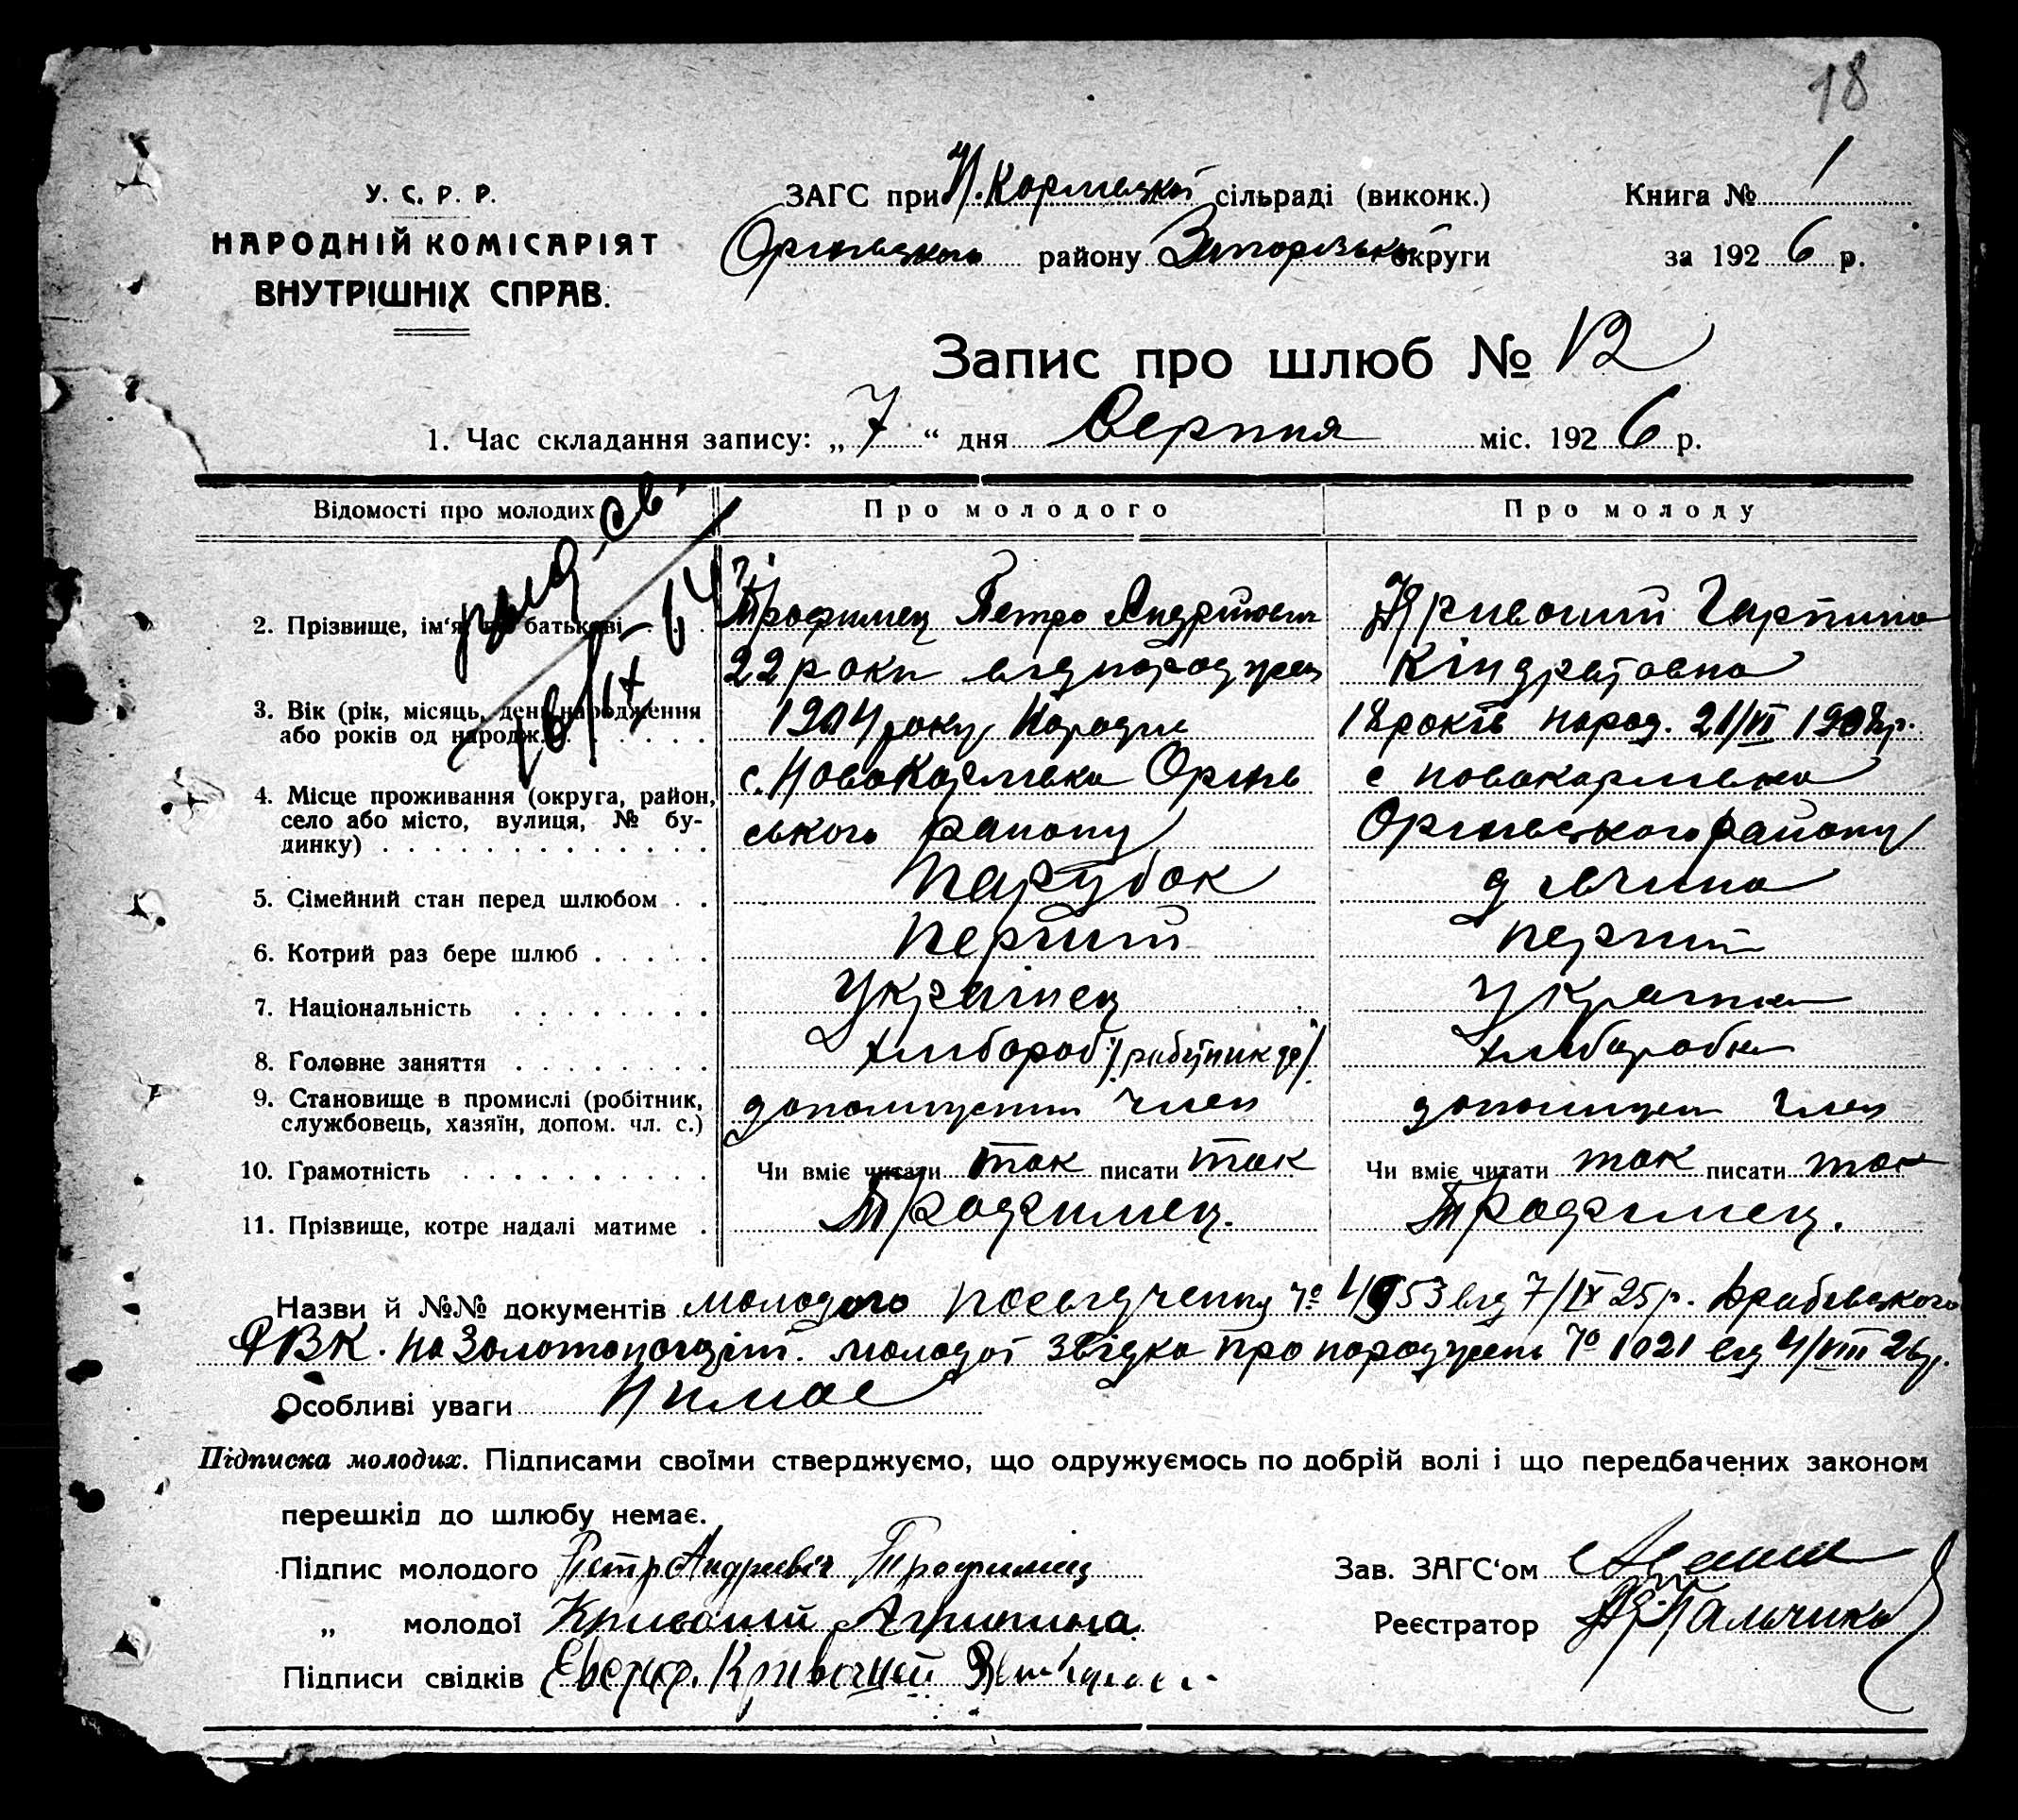 18
У. С. Р. Р.
НАРОДНІЙ КОМІСАРІЯТ
ВНУТРІШНІХ СПРАВ.
ЗАГС при Н. Карлівській сільраді (виконк.)
Оріхівського району Запорізької округи
Книга № 1
за 1926 р.
Запис про шлюб № 12
1. Час складання запису: „7“ дня Серпня міс. 1926 р.
Відомості про молодих
Про молодого
Про молоду
2. Прізвище, ім'я, по батькові
Трофимец Петро Андрійович
Кривоший Гарпина
Кіндратовна
3. Вік (рік, місяць, день народження
або років од народж.)
22 роки від народжен
1904 року народил
18 років народ. 21/VI 1908 р.
4. Місце проживання (округа, район,
село або місто, вулиця, № бу-
динку)
с. Новокарлівка Оріхів
ського району
с Новокарлівка
Оріхівського району
5. Сімейний стан перед шлюбом
Парубок
дівчина
6. Котрий раз бере шлюб
Перший
перший
7. Національність
Українец
Українка
8. Головне заняття
хлибороб
хлиборобка
9. Становище в промислі (робітник,
службовець, хазяїн, допом. чл. с.)
член
член
10. Грамотність
Чи вміє читати так писати так
Чи вміє читати так писати так
11. Прізвище, котре надалі матиме
Трофимец.
Трофимец.
Назви й №№ документів молодого посвідчення № 4953 від 7/IX 25 р. Драбівського
РВК. на Золотоношщіні. молодої звідка про народжень № 1021 від 4/VIII 26 р.
Особливі уваги Нимає
Підписка молодих. Підписами своїми стверджуємо, що одружуємось по добрій волі і що передбачених законом
перешкід до шлюбу немає.
Підпис молодого Петр Андреевич Трофимец
„ молодої Кривоший Агрипина
Підписи свідків Кривоший
Зав. ЗАГС'ом
Реєстратор